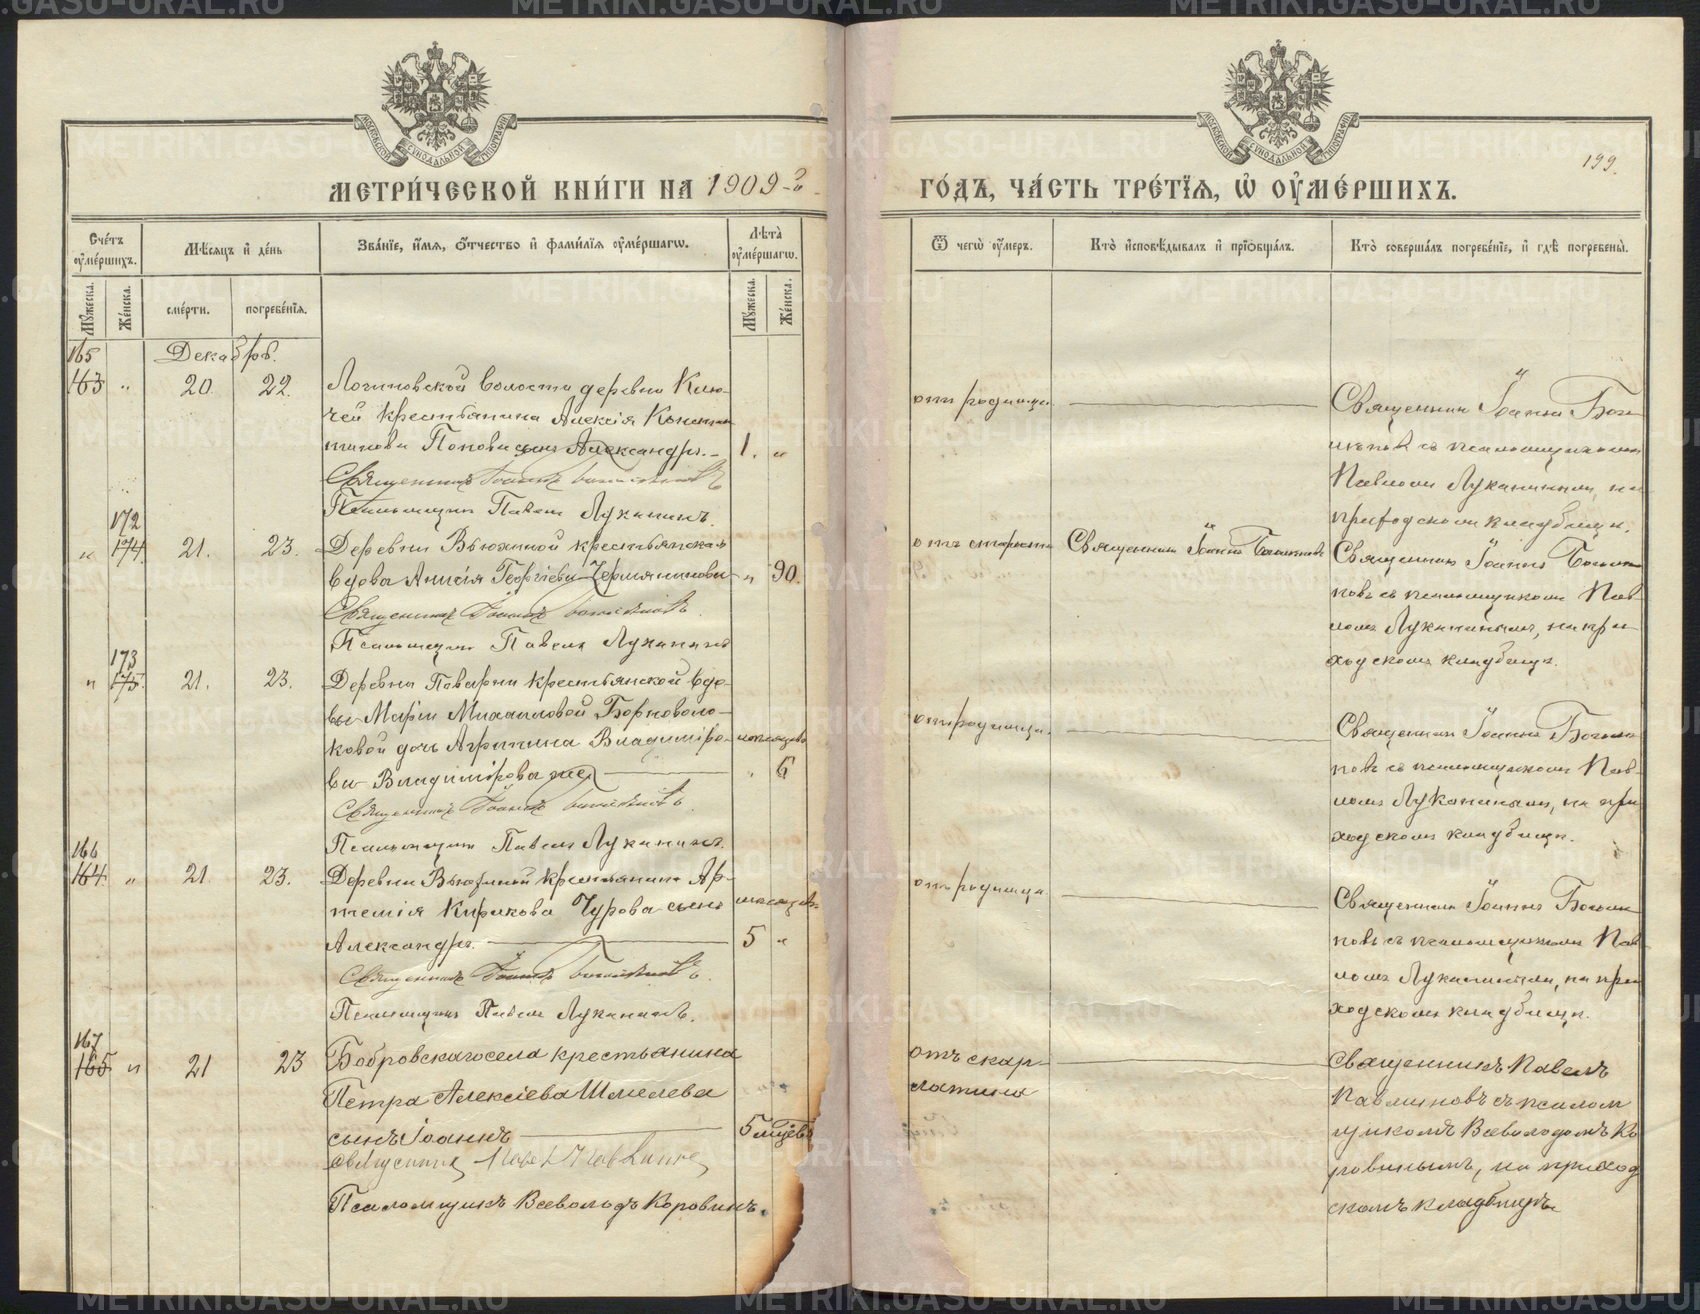 МЕТРИ́ЧЕСКОЙ КНИ́ГИ НА 1909 г.
ГО́ДЪ, ЧА́СТЬ ТРЕ́ТІЯ, Ѿ ОУМЕ́РШИХЪ.
199.
Сче́тъ оумершихъ.
Мѣ́сяцъ и де́нь
Зва́ніе, и́мя, о́тчество и фами́лія оуме́ршагω.
Лѣта̀ оуме́ршагω.
Ѿ чегѡ̀ оу́меръ.
Кто̀ исповѣ́дывалъ и пріобща́лъ.
Кто̀ соверша́лъ погребе́ніе, и гдѣ̀ погребены̀.
Му́жеска.
Же́нска.
сме́рти.
погребе́нія.
Му́жеска.
Же́нска.
165 Декабрь.
163 " 20. 22. Логиновской волости деревни Клю-
чей крестьянина Алексія Констан
тинова Попова сынъ Александръ. 1. "
Священникъ Іоаннъ
Псаломщикъ Павелъ Луканинъ.
отъ родимца.
Священникъ Іоаннъ
съ псаломщикомъ
Павломъ Луканинымъ, на
приходскомъ кладбищѣ.
172
" 174. 21. 23. Деревни Вьюхиной крестьянская
вдова Анисія Георгіева Чермянинова " 90.
Священникъ Іоаннъ
Псаломщикъ Павелъ Луканинъ
отъ старости
Священникъ Іоаннъ
Священникъ Іоаннъ
съ псаломщикомъ Пав-
ломъ Луканинымъ, на при-
ходскомъ кладбищѣ.
173
" 175. 21. 23. Деревни Поварни крестьянской вдо-
вы Маріи Михаиловой Борноволо-
ковой дочь Агрипина Владиміро- мѣсяцевъ
ва Владимірова же " 6
Священникъ Іоаннъ
Псаломщикъ Павелъ Луканинъ.
отъ родимца.
Священникъ Іоаннъ
съ псаломщикомъ Пав-
ломъ Луканинымъ, на при
ходскомъ кладбищѣ.
166
164. " 21. 23. Деревни Вьюхиной крестьянина Ар-
темія Кирикова Чурова сынъ мѣсяцевъ
Александръ. 5 "
Священникъ Іоаннъ
Псаломщикъ Павелъ Луканинъ.
отъ родимца.
Священникъ Іоаннъ
съ псаломщикомъ Пав
ломъ Луканинымъ, на при
ходскомъ кладбищѣ.
167
165 " 21 23 Бобровскаго села крестьянина
Петра Алексіева Шмелева
сынъ Іоаннъ 5 мцевъ
священникъ Павелъ Павлиновъ
Псаломщикъ Всеволодъ Коровинъ.
отъ скар-
латины
Священникъ Павелъ
Павлиновъ съ псалом
щикомъ Всеволодомъ Ко
ровинымъ, на приход
скомъ кладбищѣ.
METRIKI.GASU-URAL.RU